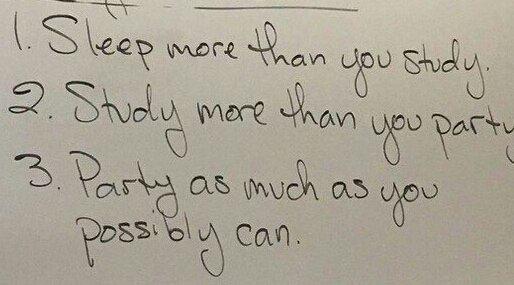 1. Sleep more than you study.
2. Study more than you party
3. Party as much as you
possibly can.